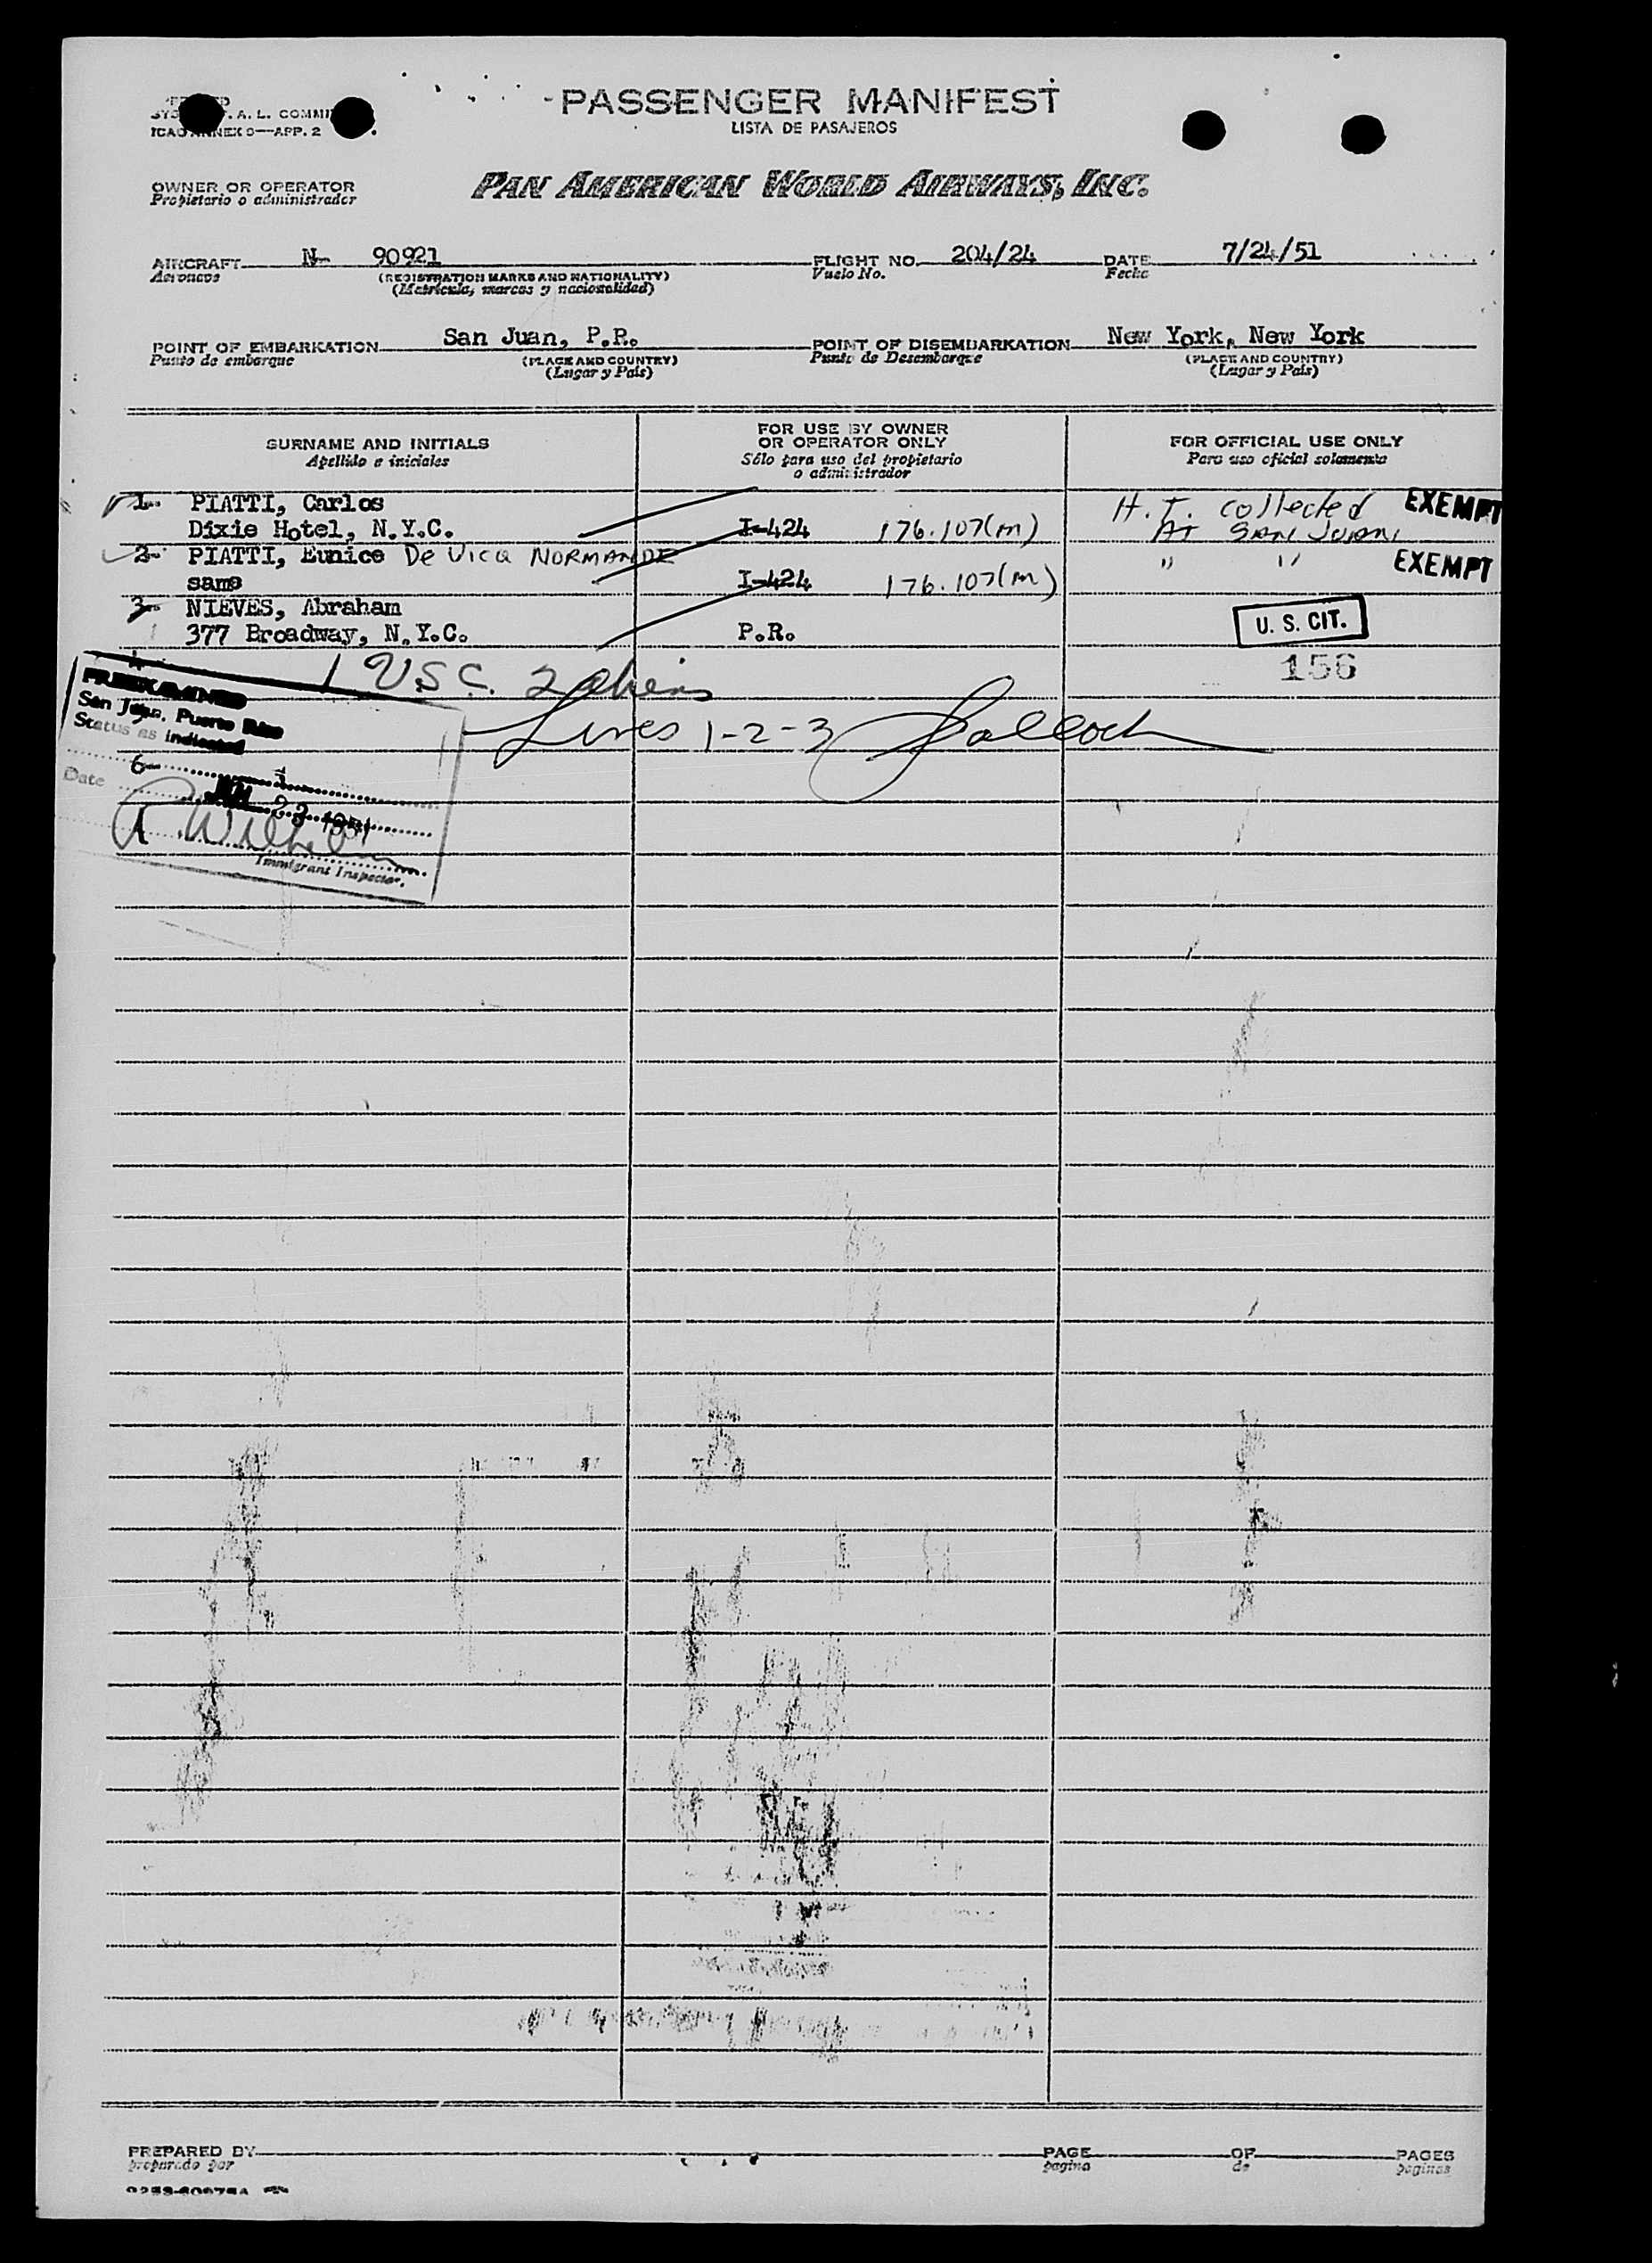 PASSENGER MANIFEST
LISTA DE PASAJEROS
A. L.
ICAO ANNEX 9—APP. 2
OWNER OR OPERATOR
Propietario o administrador
PAN AMERICAN WORLD AIRWAYS, INC.
AIRCRAFT N- 90921 FLIGHT NO. 204/24 DATE 7/24/51
Aeronave (REGISTRATION MARKS AND NATIONALITY) Vuelo No. Fecha
(Matrícula, marcas y nacionalidad)
POINT OF EMBARKATION San Juan, P.R. POINT OF DISEMBARKATION New York, New York
Punto de embarque (PLACE AND COUNTRY) Punto de Desembarque (PLACE AND COUNTRY)
(Lugar y País) (Lugar y País)
SURNAME AND INITIALS
Apellido e iniciales
FOR USE BY OWNER
OR OPERATOR ONLY
Sólo para uso del propietario
o administrador
FOR OFFICIAL USE ONLY
Para uso oficial solamente
1- PIATTI, Carlos H.T. collected EXEMPT
Dixie Hotel, N.Y.C. I-424 176.107(m) AT SAN JUAN
2- PIATTI, Eunice De Vica NORMANDE " " EXEMPT
same I-424 176.107(m)
3- NIEVES, Abraham
377 Broadway, N.Y.C. P.R. U. S. CIT.
156
1 U.S.C. 2 aliens
Lines 1-2-3
PREEXAMINED
San Juan, Puerto Rico
Status as indicated
Date 23 1951
Immigrant Inspector.
PREPARED BY PAGE OF PAGES
preparado por pagina de paginas